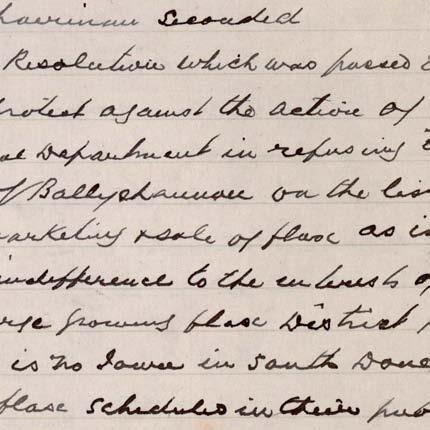 hairman seconded
Resolution which was passed
protest against the action of
Department in refusing
of Ballyshannon on the lis
marketing & sale of flax as is
indifference to the interests of
large growing flax District
is no Town in South Done
flax schedules in their pub